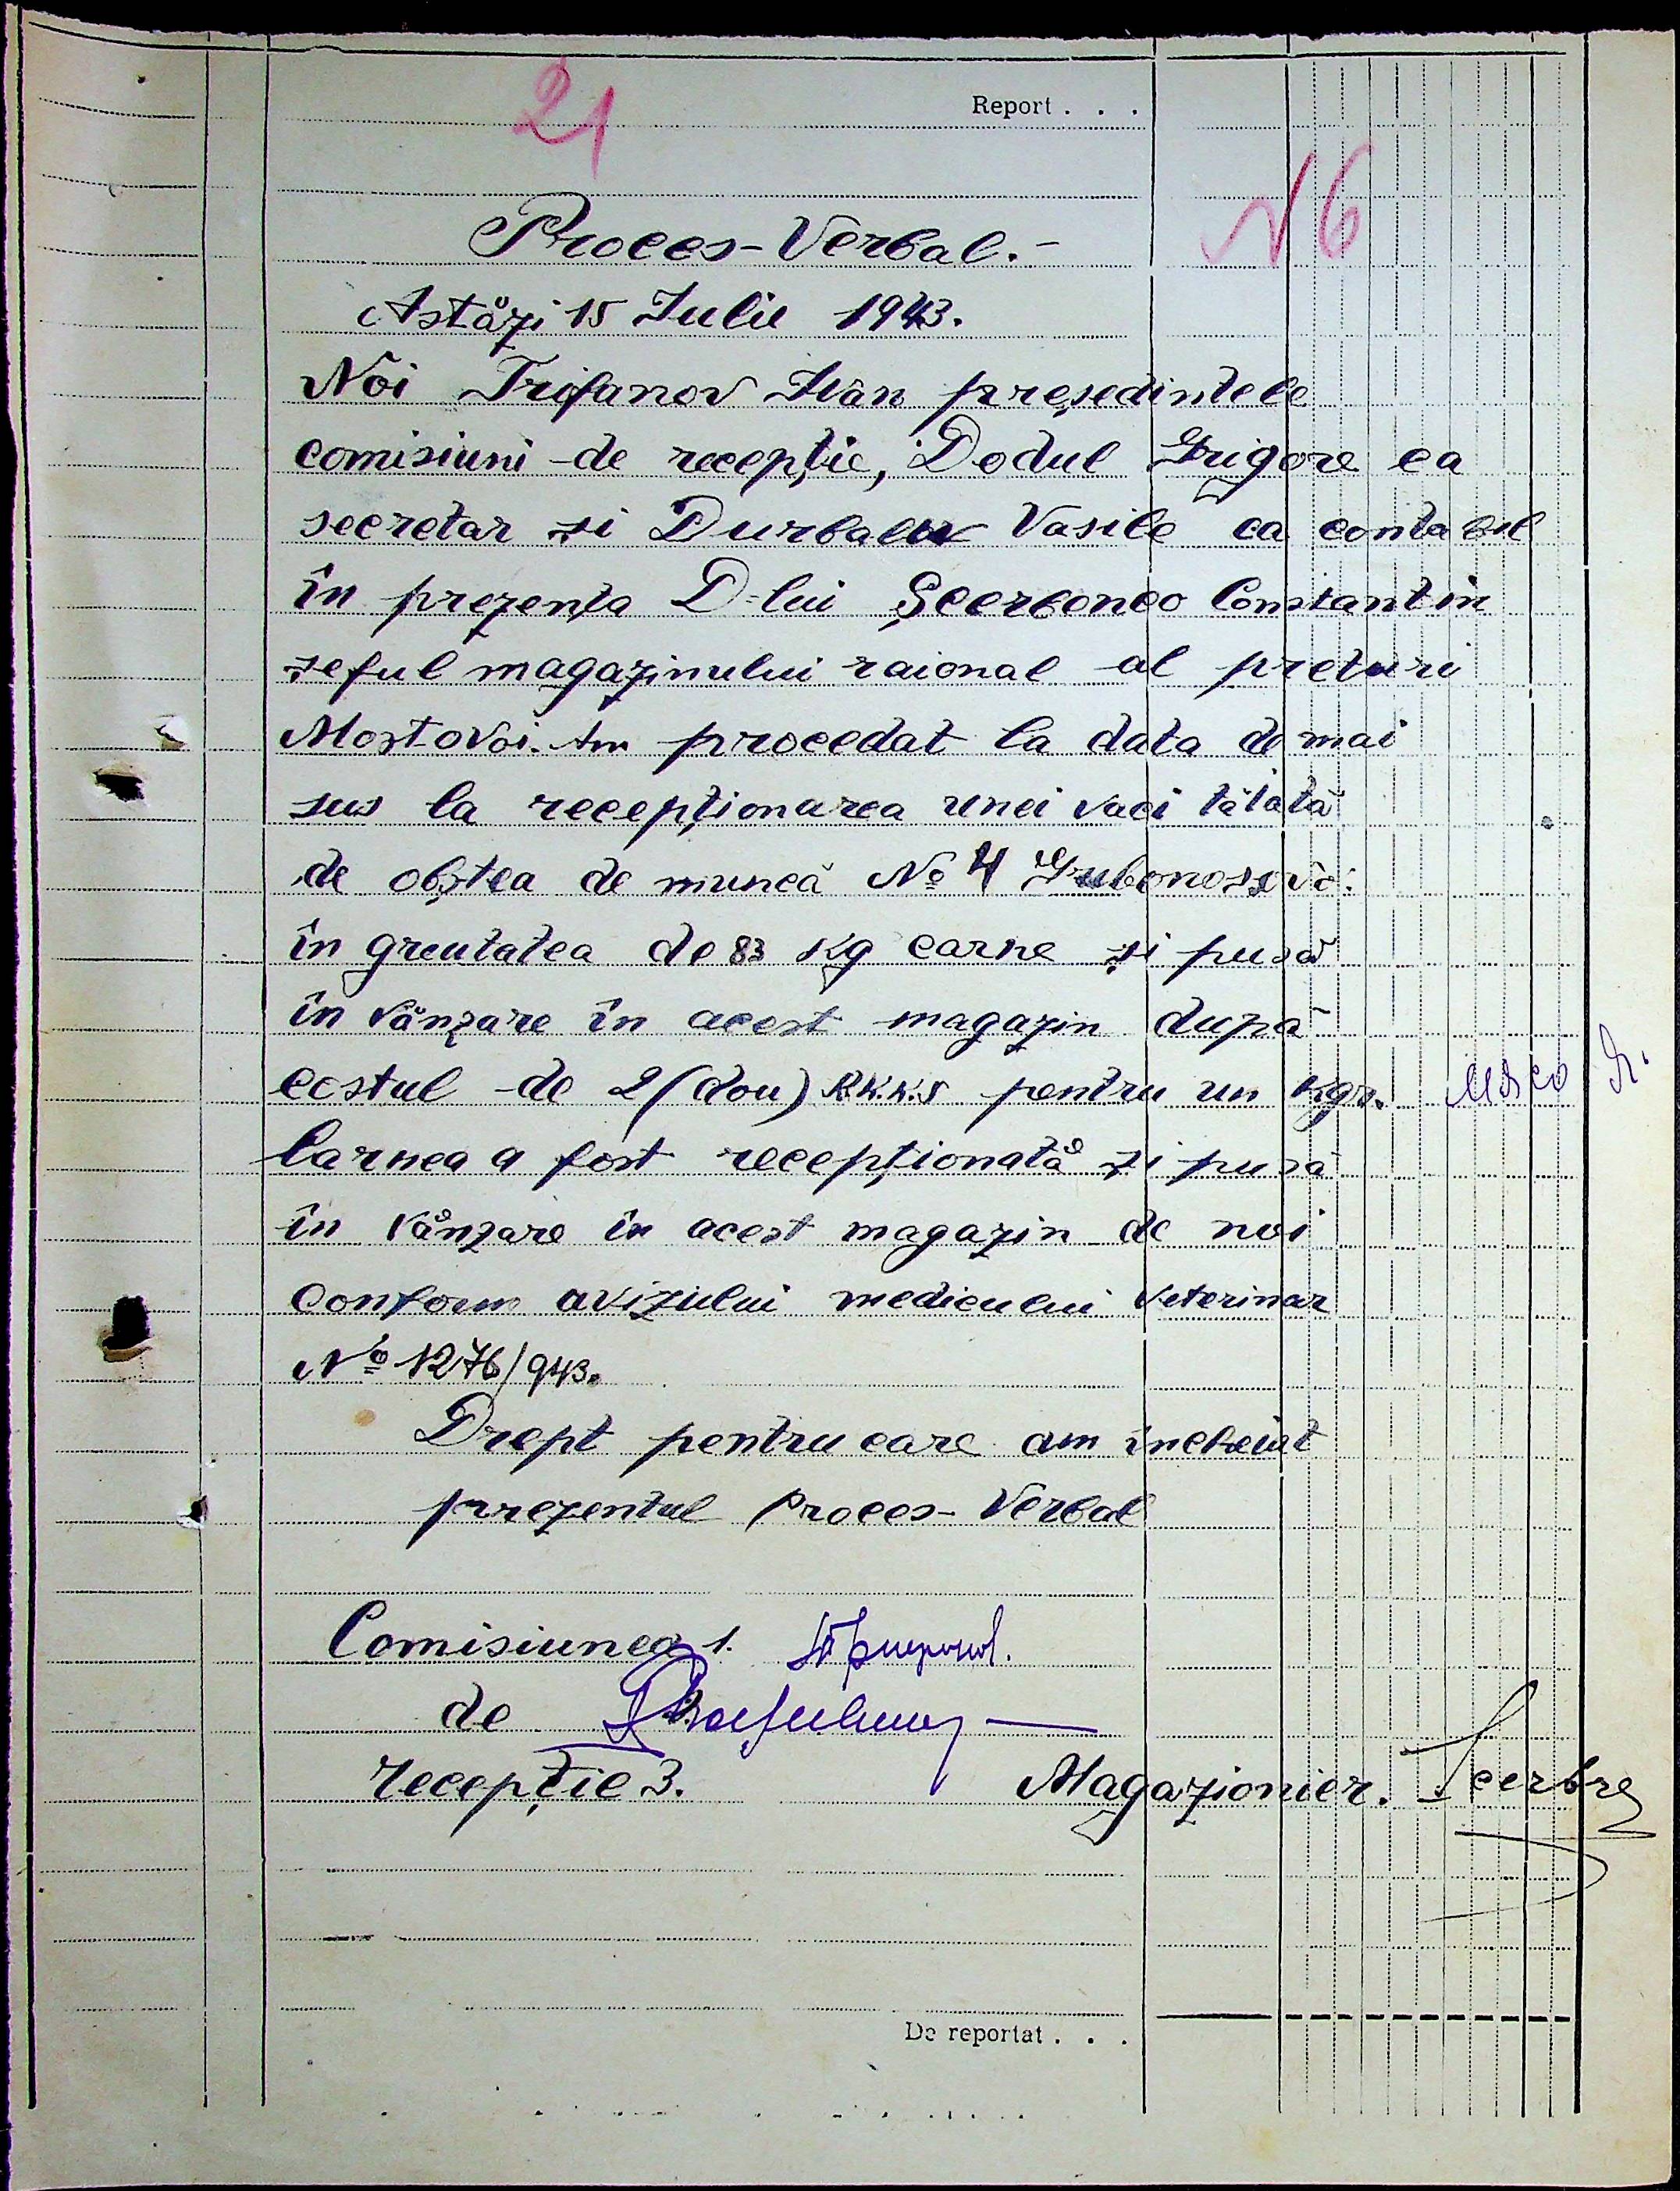 21
Report . . .
N 6
Proces-Verbal.-
Astăzi 15 Iulie 1943.
Noi Trifanov Ivan președintele
comisiuni de recepție, Dodul Grigore ca
secretar și Durbalov Vasile ca contabil
în prezența D-lui Șcerbenco Constantin
șeful magazinului raional al preturi
Mostovoi. Am procedat la data de mai
sus la recepționarea unei vaci tăiată
de obștea de muncă № 4 Gubonosova
în greutatea de 83 Kg carne și pusă
în vânzare în acest magazin după
costul de 2 (dou) R.K.K.S pentru un Kgr. мясо
Carnea a fost recepționată și pusă
în vânzare în acest magazin de noi
conform avizului medicului veterinar
№ 1276/943.
Drept pentru care am încheiat
prezentul Proces-Verbal
Comisiunea 1.
de 2.
recepție 3. Magazionier. Scerbre
De reportat . . .